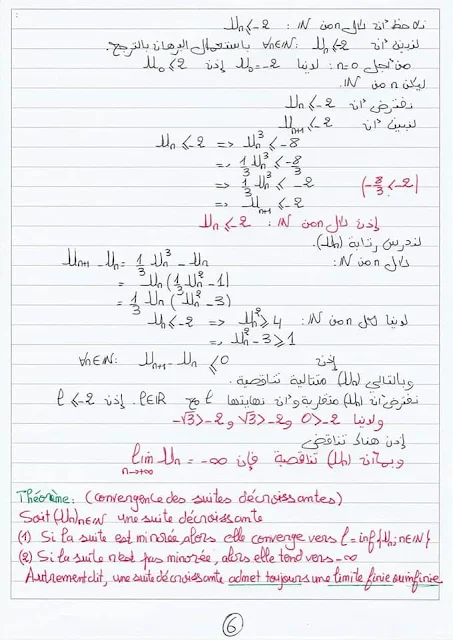 نلاحظ أن لكل n من IN : Un ≤ -2
لنبين أن ∀n∈IN: Un ≤ -2 باستعمال البرهان بالترجع.
من أجل n=0 : لدينا U0=-2 إذن U0 ≤ 2
ليكن n من IN.
نفترض أن Un ≤ -2
لنبين أن Un+1 ≤ -2
Un ≤ -2 => Un³ ≤ -8
=> 1/3 Un³ ≤ -8/3
=> 1/3 Un³ ≤ -2 (-8/3 < -2)
=> Un+1 ≤ -2
إذن لكل n من IN : Un ≤ -2
لندرس رتابة (Un).
لكل n من IN: Un+1 - Un = 1/3 Un³ - Un
= Un (1/3 Un² - 1)
= 1/3 Un (Un² - 3)
لدينا لكل n من IN: Un ≤ -2 => Un² ≥ 4
=> Un² - 3 ≥ 1
إذن ∀n∈IN: Un+1 - Un ≤ 0
وبالتالي (Un) متتالية تناقصية.
نفترض أن (Un) متقاربة وأن نهايتها l مع l∈IR. إذن l ≤ -2
ولدينا 0 > -2 و √3 > -2 و -√3 > -2
إذن هناك تناقض
وبما أن (Un) تناقصية فإن lim Un = -∞
n→+∞
Théorème: (convergence des suites décroissantes)
Soit (Un)n∈IN une suite décroissante
(1) Si la suite est minorée, alors elle converge vers l = inf{Un; n∈IN}
(2) Si la suite n'est pas minorée, alors elle tend vers -∞
Autrement dit, une suite décroissante admet toujours une limite finie ou infinie
6